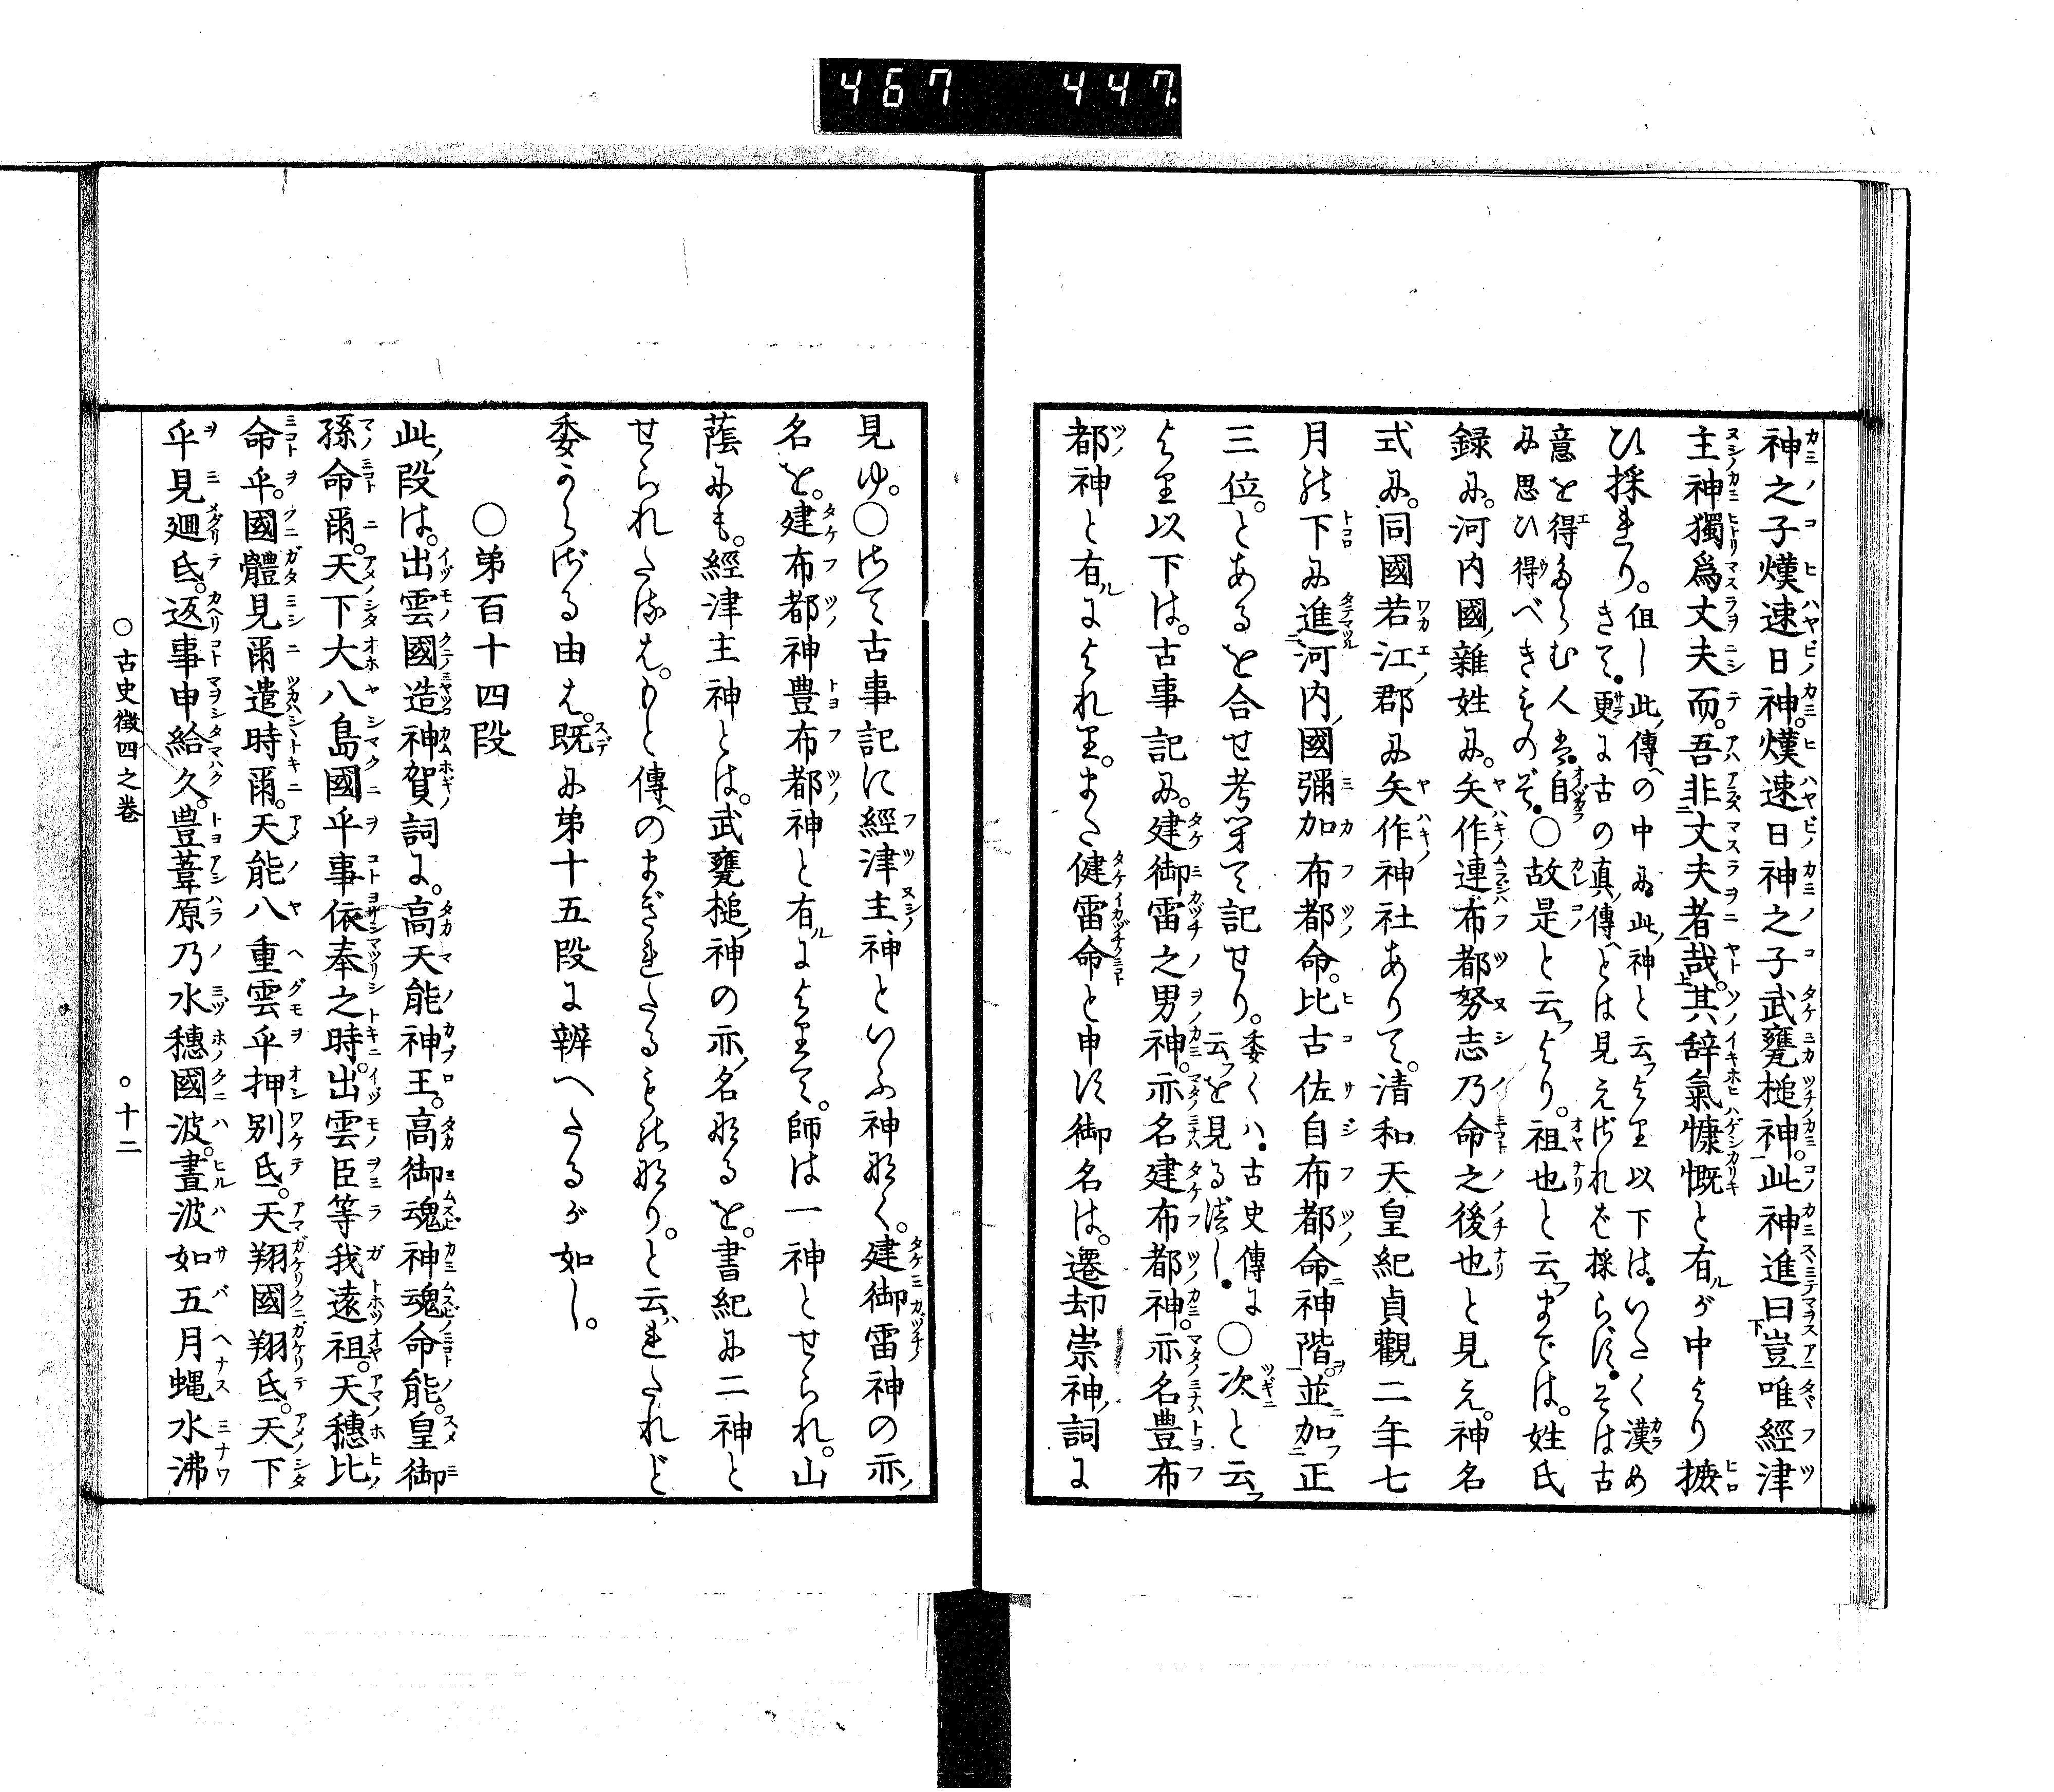 467 447
神之子熯速日神。熯速日神之子武甕槌神。此神進曰豈唯經津
主神獨爲丈夫而。吾非丈夫者哉。其辞氣慷慨と有ルが中より摭
ひ採れり。但し此ノ傳ヘの中に此ノ神と云フより以下は。いたく漢め
きて。更に古の真ノ傳ヘとは見えざれば採らず。そは古
意を得たらむ人は。自
に思ひ得べきものぞ。○故是と云フより。祖也と云フまでは。姓氏
録に。河内國ノ雜姓に。矢作連布都努志乃命之後也と見え。神名
式に。同國若江ノ郡に矢作神社ありて。清和天皇紀貞觀二年七
月の下に進河内ノ國彌加布都命。比古佐自布都命神階。並加正
三位。とあるを合せ考へて記せり。委くハ。古史傳に
云フを見るべし。○次と云フ
より以下は。古事記に。建御雷之男神。亦名建布都神。亦名豊布
都神と有ルによれり。また健雷命と申す御名は。遷却祟神ノ詞に
見ゆ。○さて古事記に經津主神といふ神なく。建御雷神の亦ノ
名を。建布都神豊布都神と有ルによりて。師は一神とせられ。山
蔭にも。經津主神とは。武甕槌ノ神の亦ノ名なるを。書紀に二神と
せられたるは。もと傳ヘのまぎれたるものなり。と云ハれたれど
委からざる由は。既に第十五段に辨へたるが如し。
○第百十四段
此ノ段は。出雲國造神賀詞に。高天能神王。高御魂神魂命能。皇御
孫命爾。天下大八島國乎事依奉之時。出雲臣等我遠祖。天穗比
命乎。國體見爾遣時爾。天能八重雲乎押別氐。天翔國翔氐。天下
乎見廻氐。返事申給久。豊葦原乃水穗國波。晝波如五月蝿水沸
○古史徴四之巻 ○十二